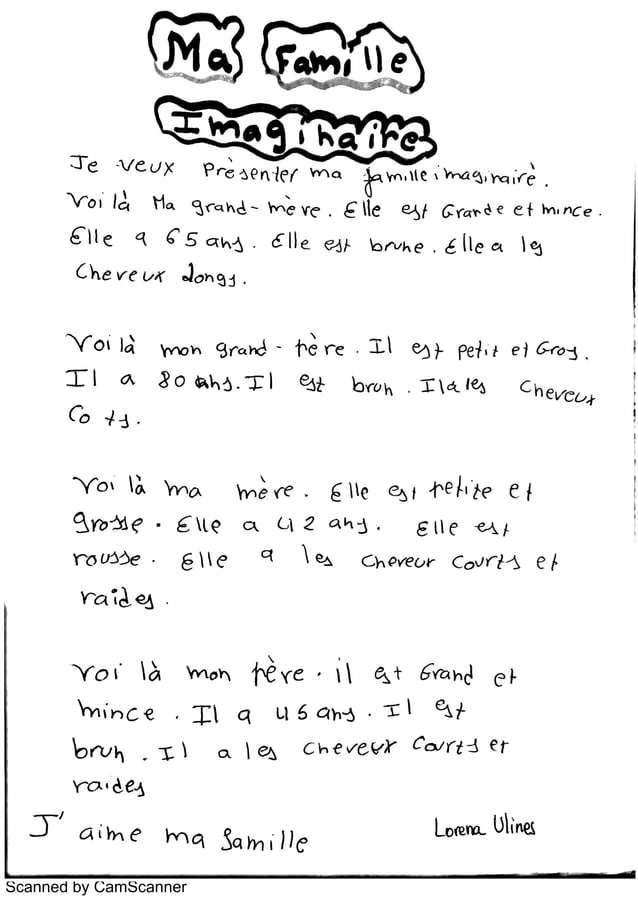 Ma Famille
Imaginaire
Je veux Prèsenter ma famille imaginairè.
Voi là Ma grand-mère. Elle est Grande et mince.
Elle a 65 ans. Elle est brune. Elle a les
Cheveux longs.
Voi là mon grand-père. Il est petit et Gros.
Il a 80 ans. Il est brun. Il a les Cheveux
Co ts.
Voi là ma mère. Elle est petite et
grosse. Elle a 42 ans. Elle est
rousse. Elle a les Cheveux Courts et
raides.
Voi là mon père. il est Grand et
mince. Il a 45 ans. Il est
brun. Il a les Cheveux Courts et
raides
J'aime ma famille
Lorena Ulines
Scanned by CamScanner